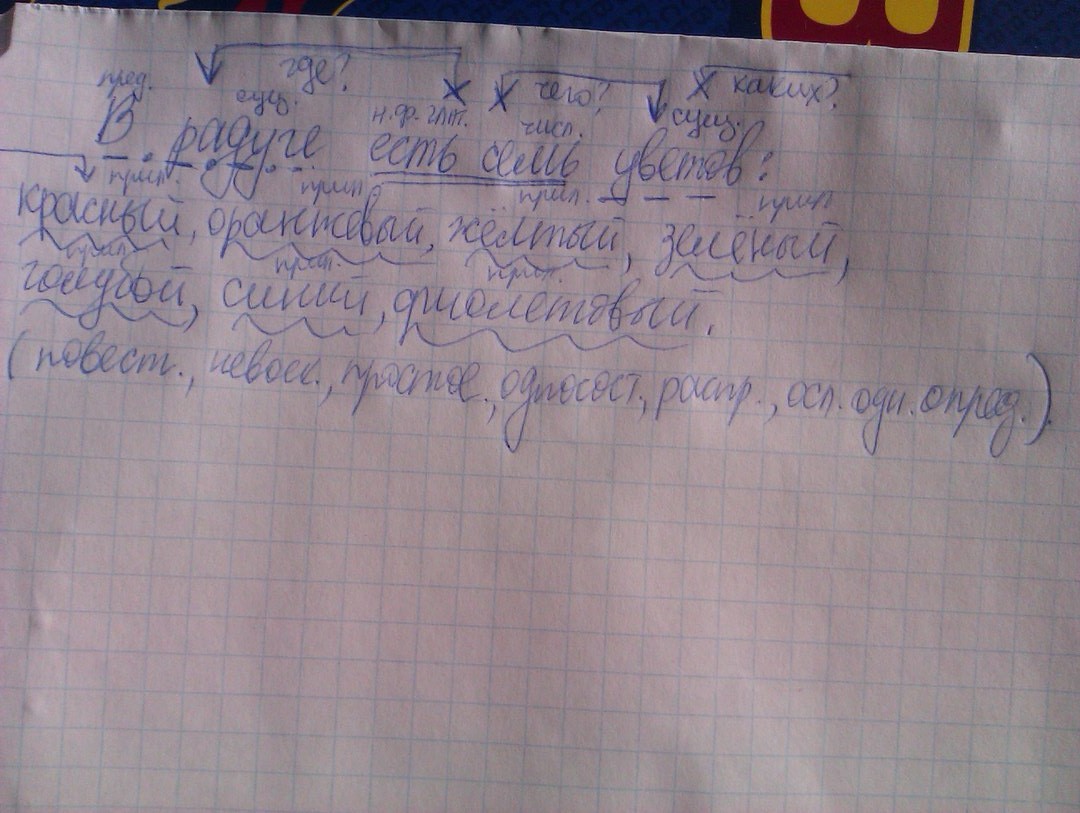 где? чего? каких?
пред. сущ. н.ф. глаг. числ. сущ.
В радуге есть семь цветов:
прил. прил. прил. прил.
красный, оранжевый, жёлтый, зелёный,
прил. прил. прил.
голубой, синий, фиолетовый.
(повест., невоск., простое, односост., распр., осл. одн. опред.).